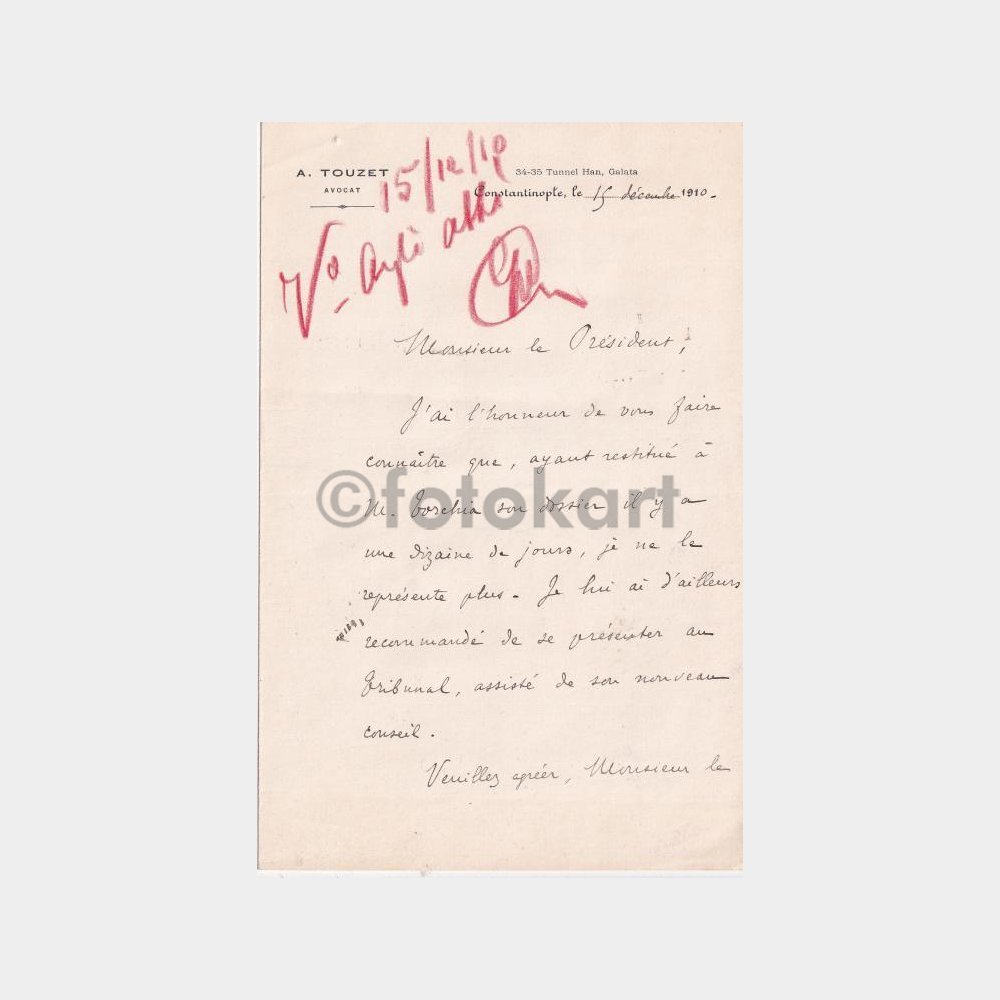 A. TOUZET
AVOCAT
34-35 Tunnel Han, Galata
Constantinople, le 15 décembre 1910.
15/12/10
Monsieur le Président,
J'ai l'honneur de vous faire
connaître que, ayant restitué à
©fotokart
M. Torchia son dossier il y a
une dizaine de jours, je ne le
représente plus. Je lui ai d'ailleurs
recommandé de se présenter au
tribunal, assisté de son nouveau
conseil.
Veuillez agréer, Monsieur le